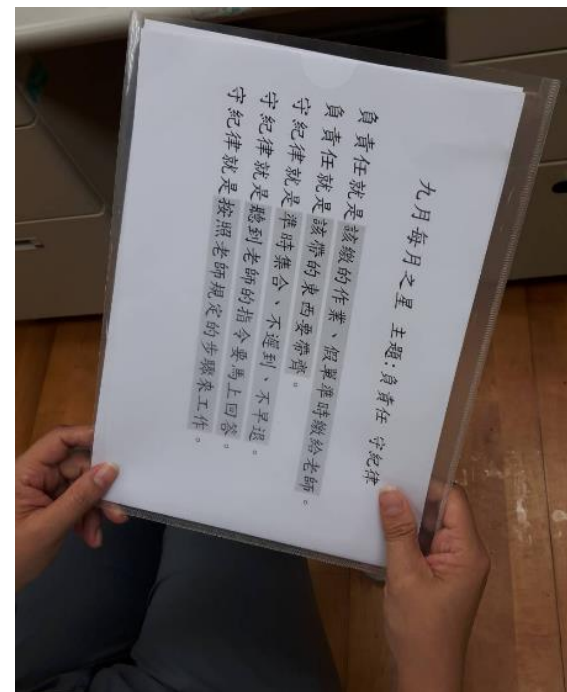 九月每月之星 主題:負責任 守紀律
負責任就是該繳的作業、假單準時繳給老師。
負責任就是該帶的東西要帶齊。
守紀律就是準時集合、不遲到、不早退。
守紀律就是聽到老師的指令要馬上回答。
守紀律就是按照老師規定的步驟來工作。